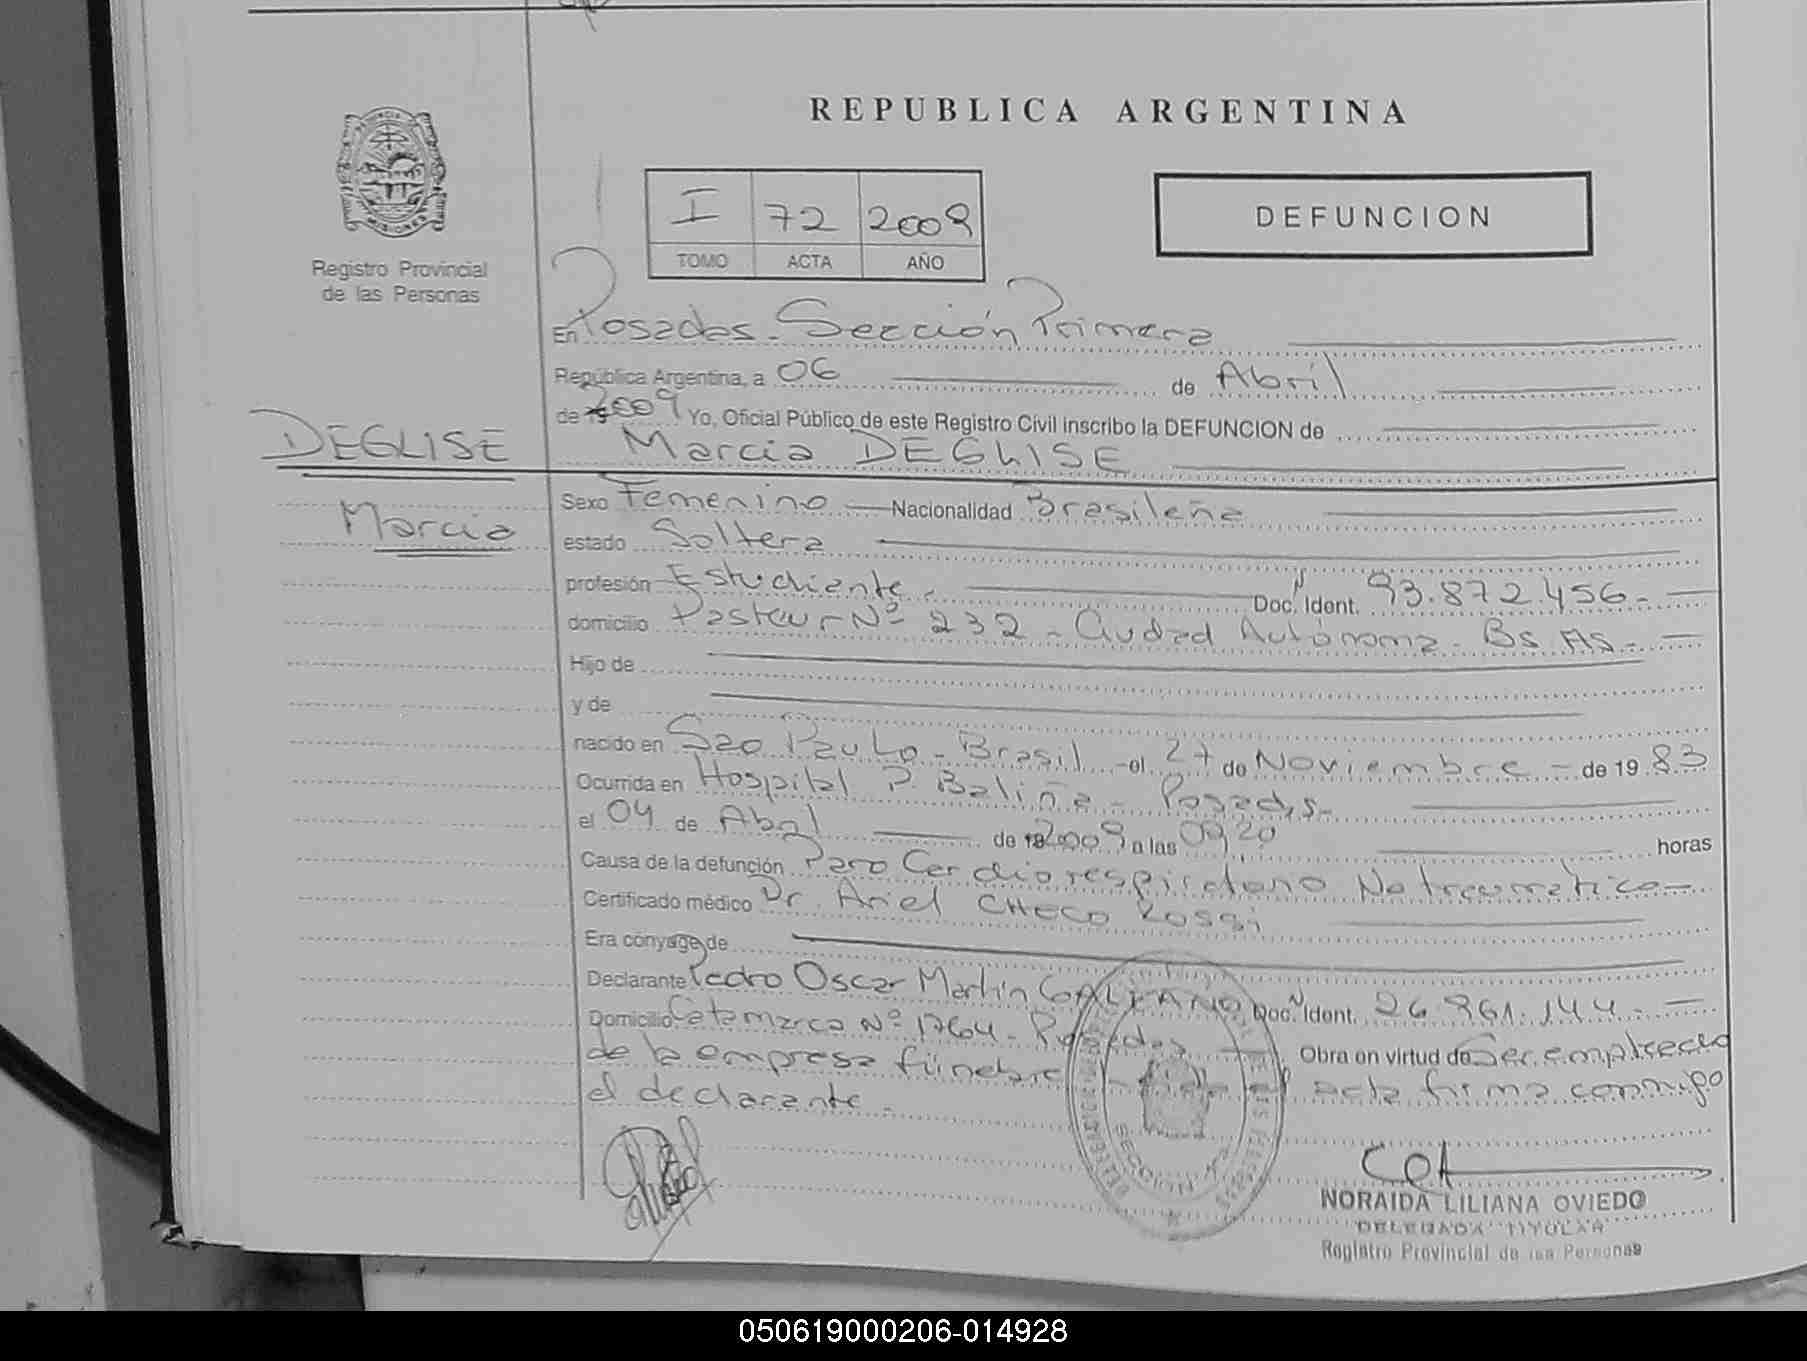 REPUBLICA ARGENTINA
I 72 2009
TOMO ACTA AÑO
DEFUNCION
Registro Provincial
de las Personas
En Posadas - Sección Primera
República Argentina, a 06 de Abril
de 2009 Yo, Oficial Público de este Registro Civil inscribo la DEFUNCION de
DEGLISE
Marcia DEGLISE
Marcia
Sexo Femenino Nacionalidad Brasileña
estado Soltera
profesión Estudiante. Doc. Ident. 93.872.456.-
domicilio Pasteur Nº 232 - Ciudad Autónoma - Bs. As.-
Hijo de
y de
nacido en Sao Paulo - Brasil el 27 de Noviembre - de 1983
Ocurrida en Hospital P. Baliña - Posadas -
el 04 de Abril de 2009 a las 09 20 horas
Causa de la defunción Paro Cardiorespiratorio No traumatico -
Certificado médico Dr. Ariel CHECO Rossi
Era cónyuge de
Declarante Pedro Oscar Martin GALEANO Doc. Ident. 26.961.144.-
Domicilio Catamarca Nº 1764 - Posadas Obra en virtud de Ser empleado
de la empresa fúnebre el acta firma conmigo
el declarante.
NORAIDA LILIANA OVIEDO
DELEGADA TITULAR
Registro Provincial de las Personas
050619000206-014928